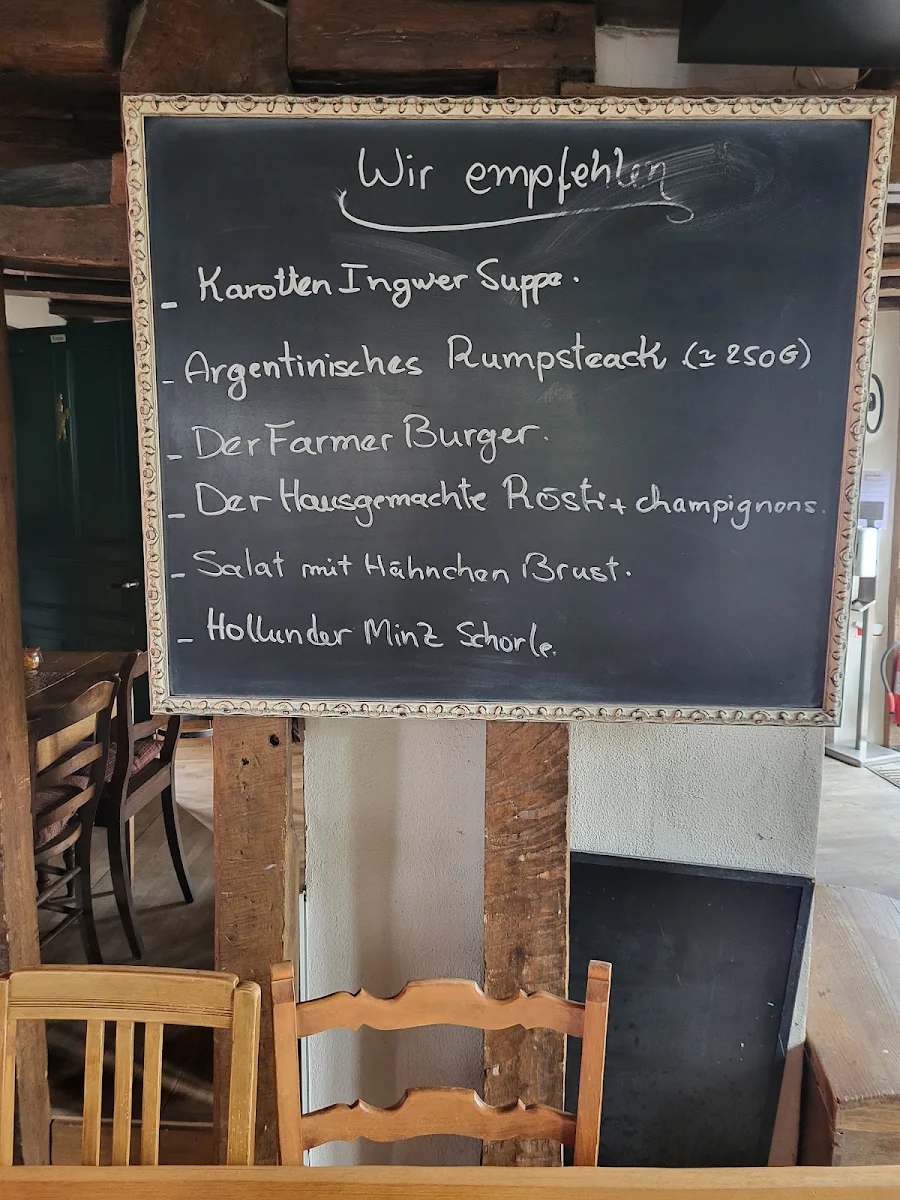 Wir empfehlen
- Karotten Ingwer Suppe.
- Argentinisches Rumpsteack (≃ 250G)
- Der Farmer Burger.
- Der Hausgemachte Rösti + champignons.
- Salat mit Hähnchen Brust.
- Hollunder Minz Schorle.